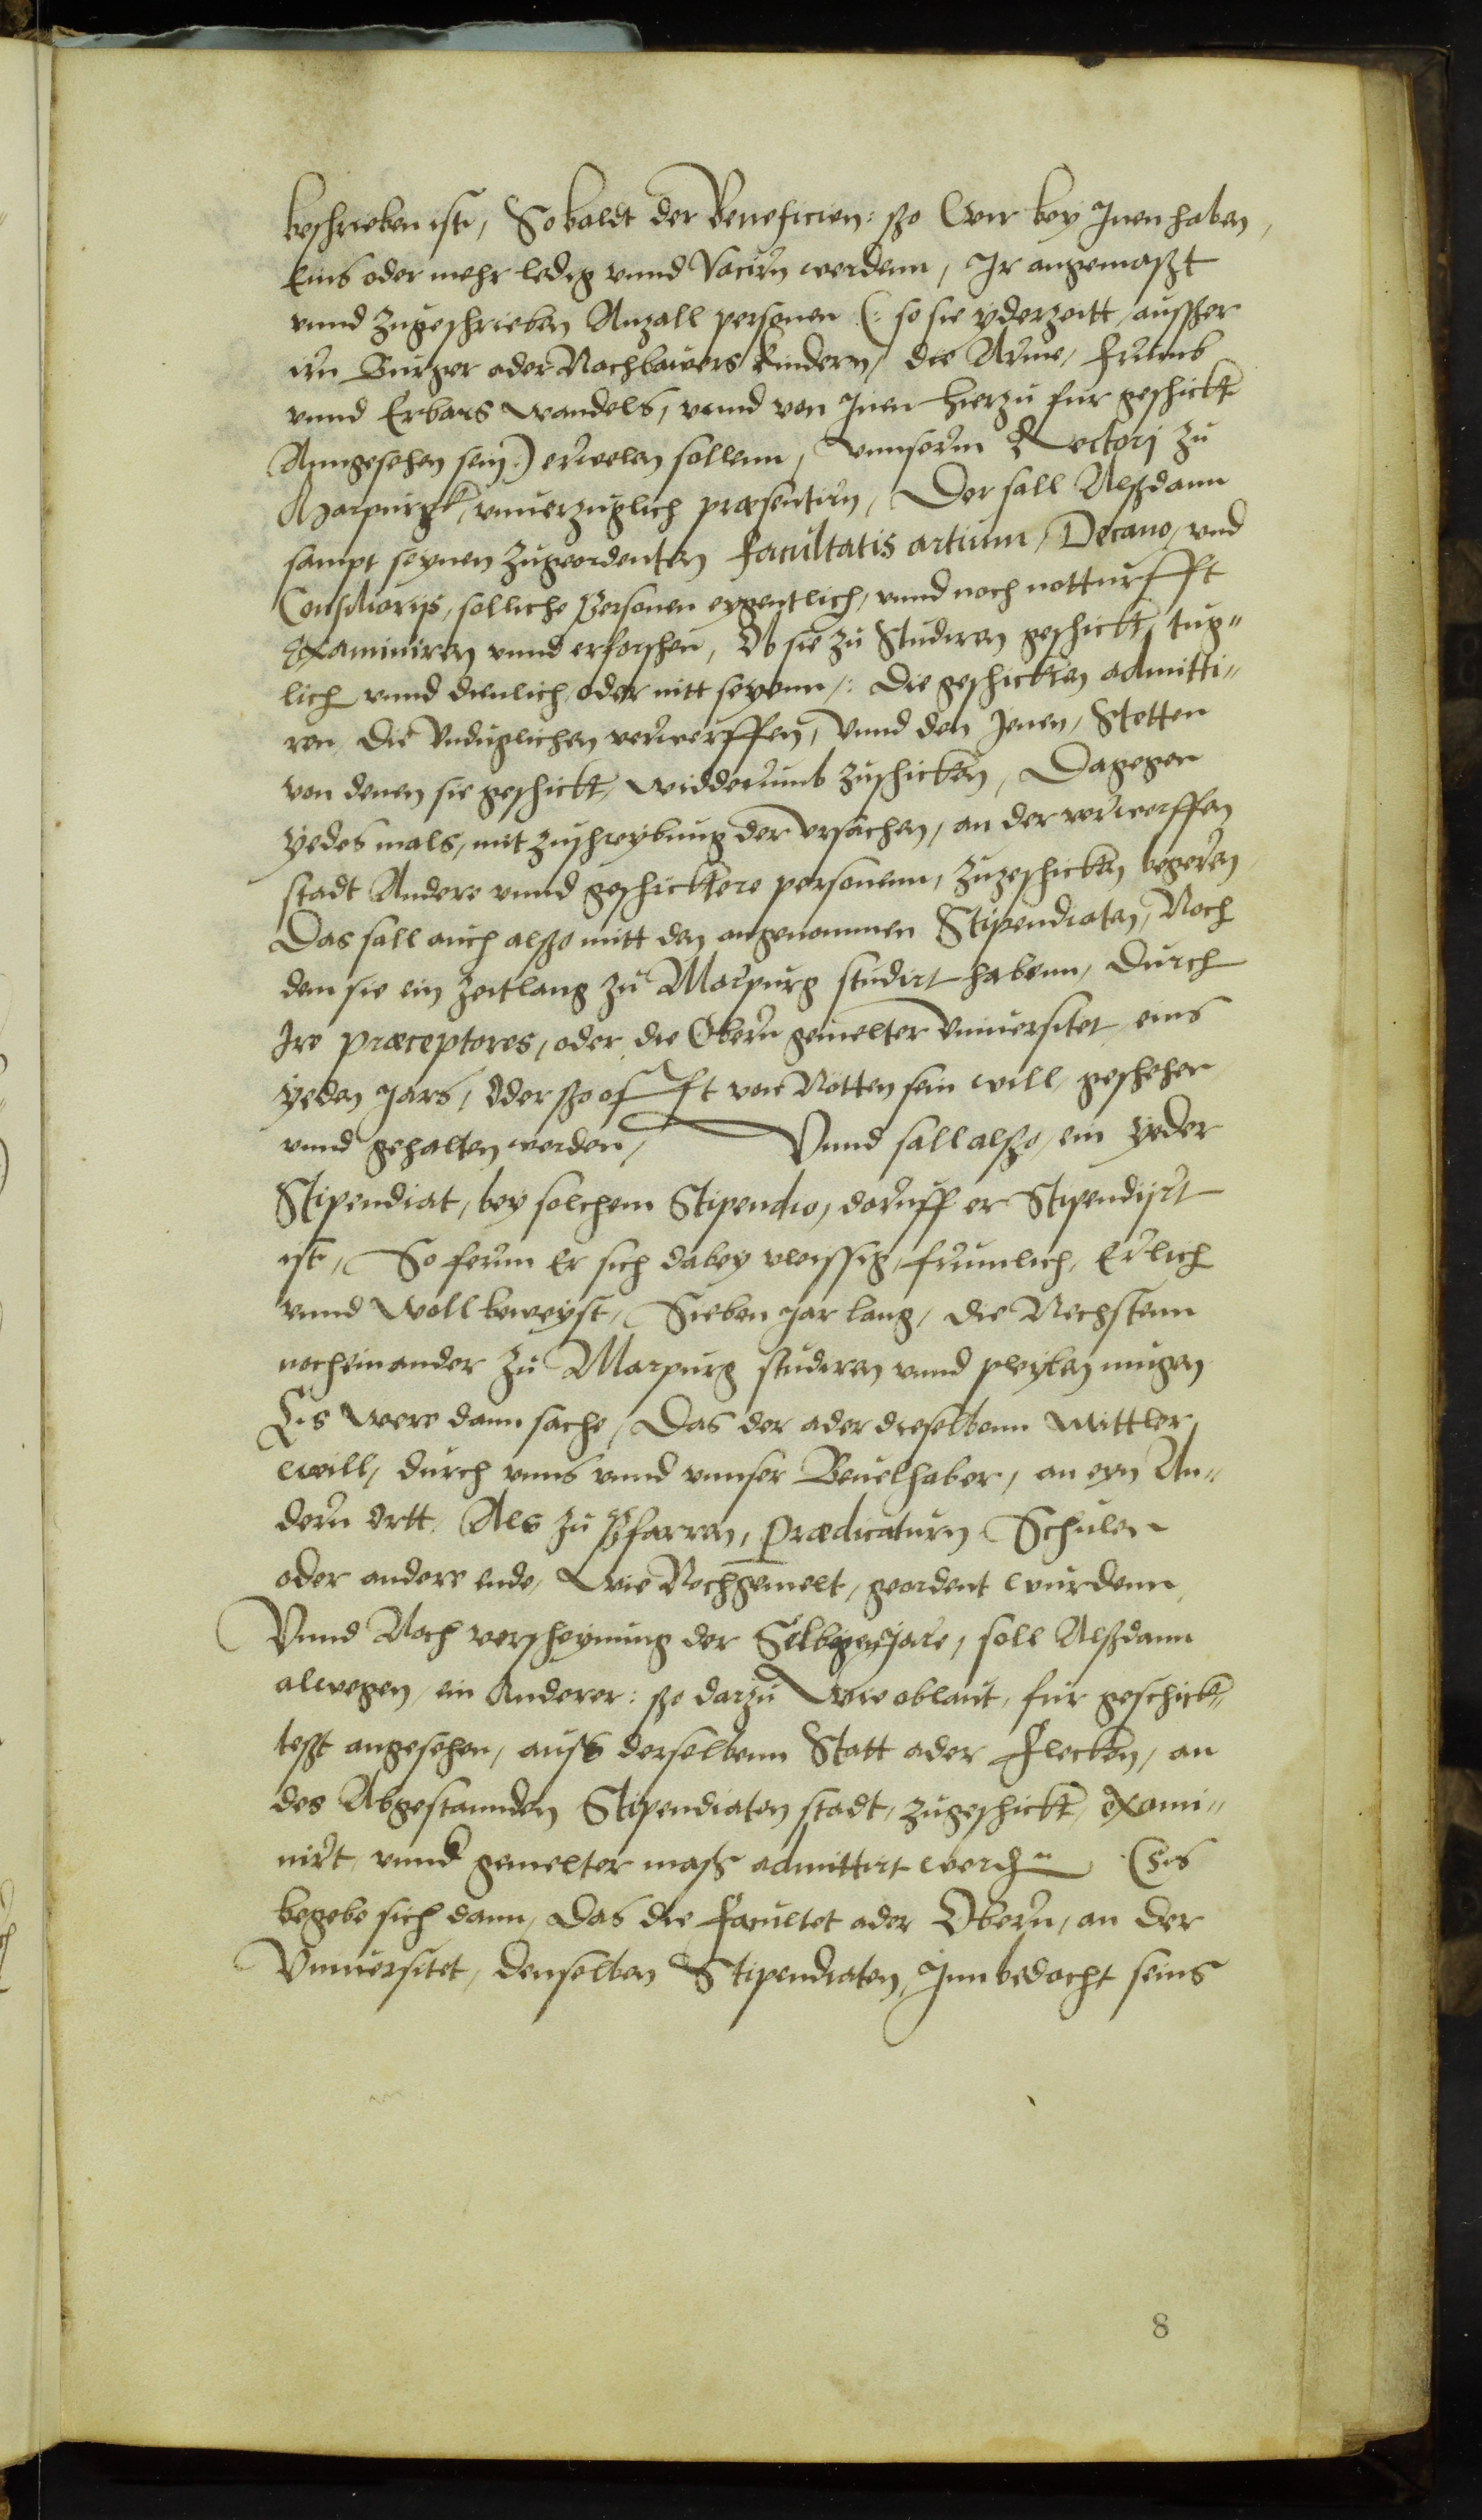 beschrieben ist, So baldt der Beneficien: szo Wir bey Inen haben,
Eins oder mehr ledig vnnd Vacirn werdenn, Ir angemaszt
vnnd zugeschrieben Anzall personen (: so sie yderzeitt ausszer
irn Burger oder Nachbawers kindern, die Arme, frumb
vnnd Erbars wandels, vnnd von Inen hierzu fur geschickt
Anngesehen sein:) erwelen sollenn, Vnnserm Rectorj zu
Marpurgk, vnuerzuglich præsentirn, Der sall Alszdann
sampt seynen zugeordenten facultatis artium, Decano, vnd
Consiliarijs, solliche Personen eygentlich, vnnd noch notturfft
Examiniren vnnd erforschen, Ob sie zu Studiren geschickt, tug"
lich vnnd dienlich oder nitt seyenn,: Die geschickten admitti"
ren, die Vnduglichen verwerffen, Vnnd den Jenen, Stetten
von denen sie geschickt, widderumb zuschicken, Dagegen
yedes mals, mit zuschreybung der vrsachen, an der verworffen
stadt Andere vnnd geschicktere personenn, zuzeschicken begeren
Das sall auch alszo mitt den angenommen Stipendiaten, Noch
dem sie ein zeitlang zu Marpurg studirt habenn, durch
Ire præceptores, oder die Obern gemelter Vniuersitet eins
yeden Jars, Oder szo offt von Nötten sein will, geschehen
vnnd gehalten werden, Vnnd sall alszo, ein yeder
Stipendiat, bey solchem Stipendio, doruff er Stipendijrt
ist, So ferrn Er sich dabey vleissig, frumlich, Erlich
vnnd Woll beweyst, Sieben Jar lang, die Nechstenn
nocheinander zu Marpurg studiren vnnd pleyben mugen
Es Were dann sache, Das der ader dieselbenn Mittler
Will, durch vnns vnnd vnnser Beuelhaber, an eyn An"
dern Ortt, Als zu Pfarren, Prædicaturn Schulen
oder andere ende, Wie Nochgemelt, geordent Wurdenn,
Vnnd Noch verscheynung der Selbigen Jare, soll Alszdann
alwegen, ein Anderer: szo darzu Wie oblaut, fur geschick"
teszt angesehen, ausz derselbenn Statt ader Flecken, an
des Abgestannden Stipendiaten stadt, zugeschickt, Exami"
nirt, vnnd gemelter masz admittirt werden Es
begebe sich dann, das die Facultet ader Obern, an der
Vniuersitet, denselben Stipendiaten, Inn bedacht seins
8